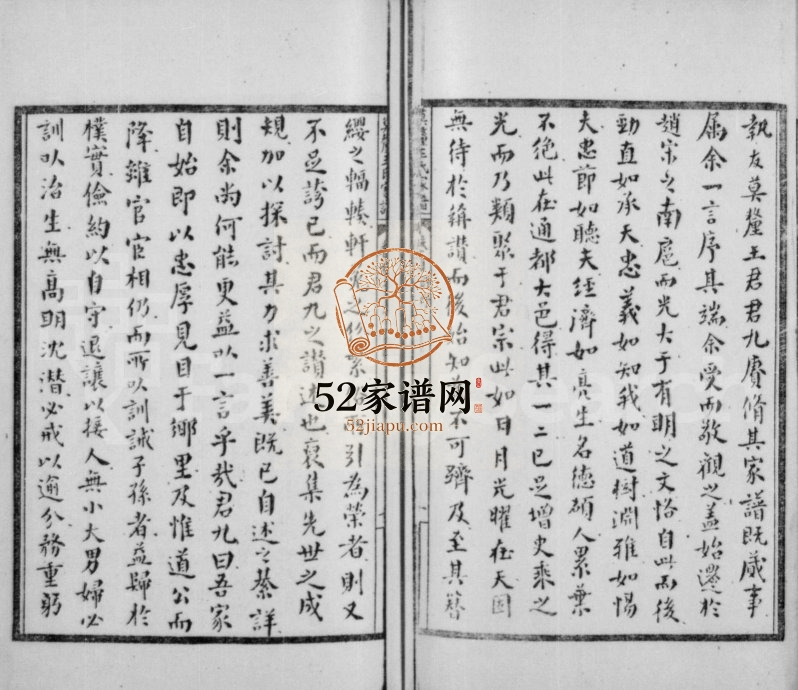 執友莫釐王君君九賡脩其家譜既蕆事
屬余一言序其端余受而敬觀之蓋始遷於
趙宋之南扈而光大于有明之文恪自此而後
勁直如承天忠義如知我如道樹淵雅如惕
夫忠節如聽夫經濟如亮生名德碩人累葉
不絕此在通都大邑得其一二已足增史乘之
光而乃類聚于君宗此如日月光曜在天固
無待於籍讚而後始知 不可躋及至其簪
纓之輻輳軒 之 引為榮者則又
不足誇已而君九之讚 也裒集先世之成
規加以探討其力求善美既已自述之綦詳
則余尚何能更益以一言乎哉君九曰吾家
自始即以忠厚見目于鄉里及惟道公而
降雖官宦相仍而所以訓誡子孫者益歸於
樸實儉約以自守退讓以接人無小大男婦必
訓以治生無高明沈潛必戒以逾分務重躬
52家谱网
52jiapu.com